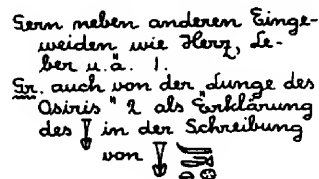 Gern neben anderen Einge-
weiden wie Herz, Le-
ber u. ä. 1.
Gr. auch von der „Lunge des
Osiris" 2 als Erklärung
des 𓄥 in der Schreibung
von 𓄥